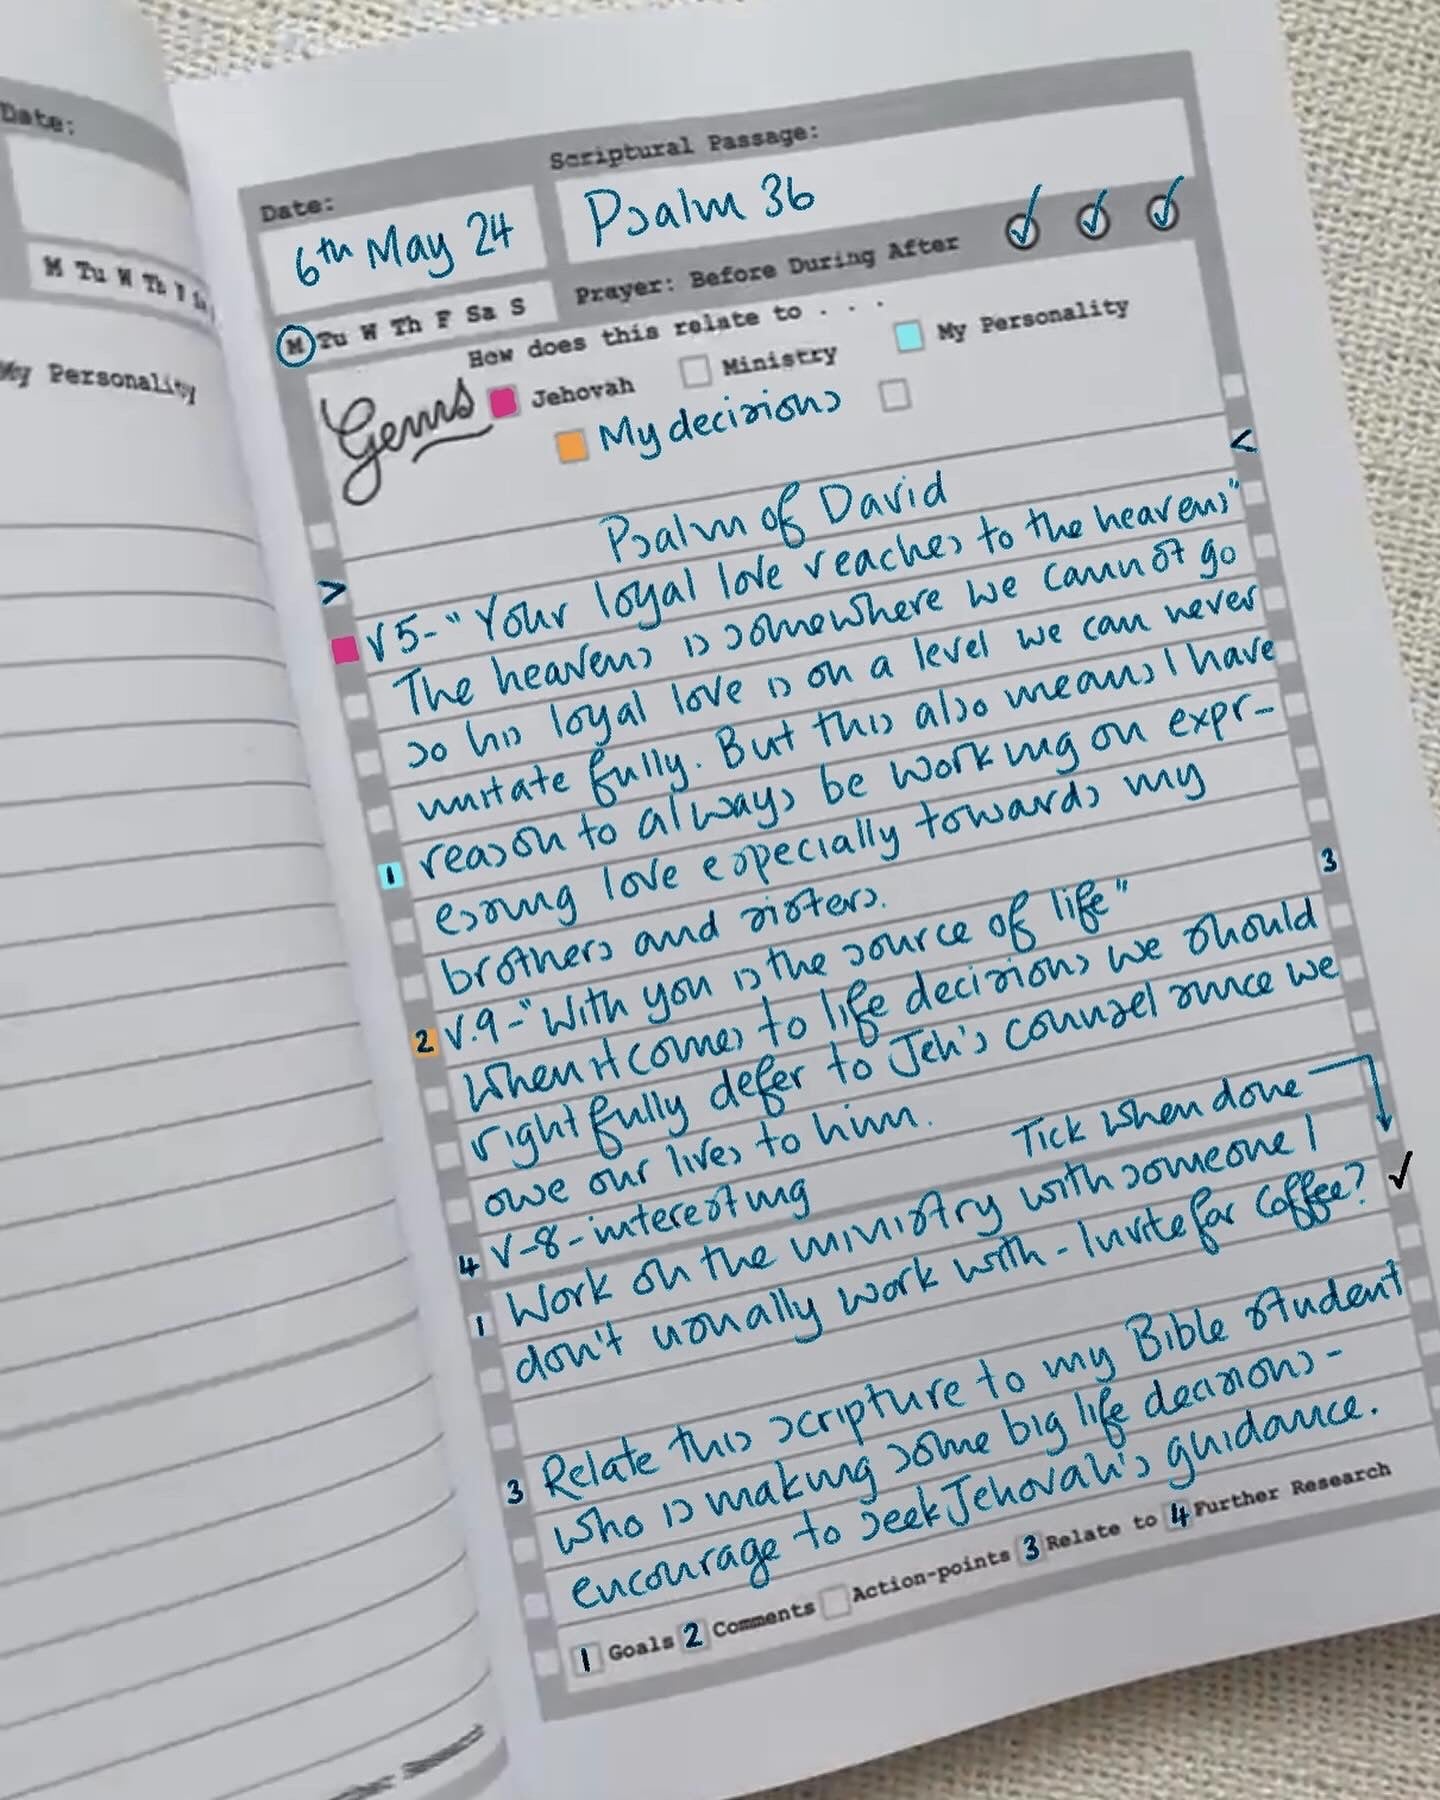 Date:
M Tu W Th F Sa
My Personality
Scriptural Passage:
Date:
6th May 24
Psalm 36
M Tu W Th F Sa S
Prayer: Before During After
How does this relate to . . .
Gems
Jehovah
Ministry
My Personality
My decisions
<
Psalm of David
>
V5-"Your loyal love reaches to the heavens"
The heavens is somewhere we cannot go
so his loyal love is on a level we can never
imitate fully. But this also means I have
1 reason to always be working on expr-
essing love especially towards my
brothers and sisters.
3
2 V.9-"With you is the source of life"
When it comes to life decisions we should
rightfully defer to Jeh's counsel since we
owe our lives to him.
Tick when done
4 V-8-interesting
1 Work on the ministry with someone I
don't usually work with - Invite for coffee? ✓
3 Relate this scripture to my Bible student
who is making some big life decisions -
encourage to seek Jehovah's guidance.
1 Goals 2 Comments Action-points 3 Relate to 4 Further Research